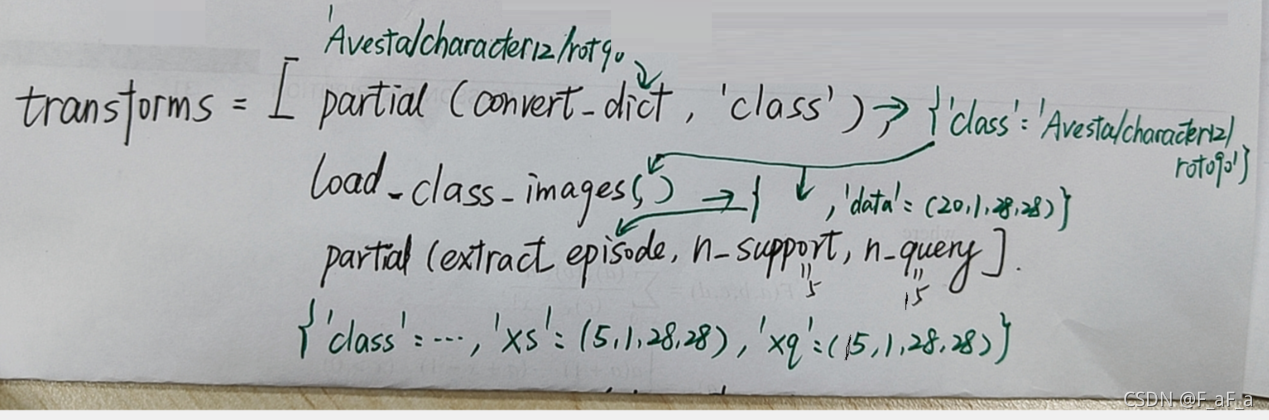 'Avesta/character12/rot90
transforms = [ partial (convert_dict , 'class') → {'class': 'Avesta/character12/
rot090'}
load_class_images( ) → { , 'data': (20,1,28,28)}
partial (extract episode, n_support, n_query].
"5 "15
{'class': ..., 'xs': (5,1,28,28), 'xq': (15,1,28,28)}
CSDN @F_aF.a